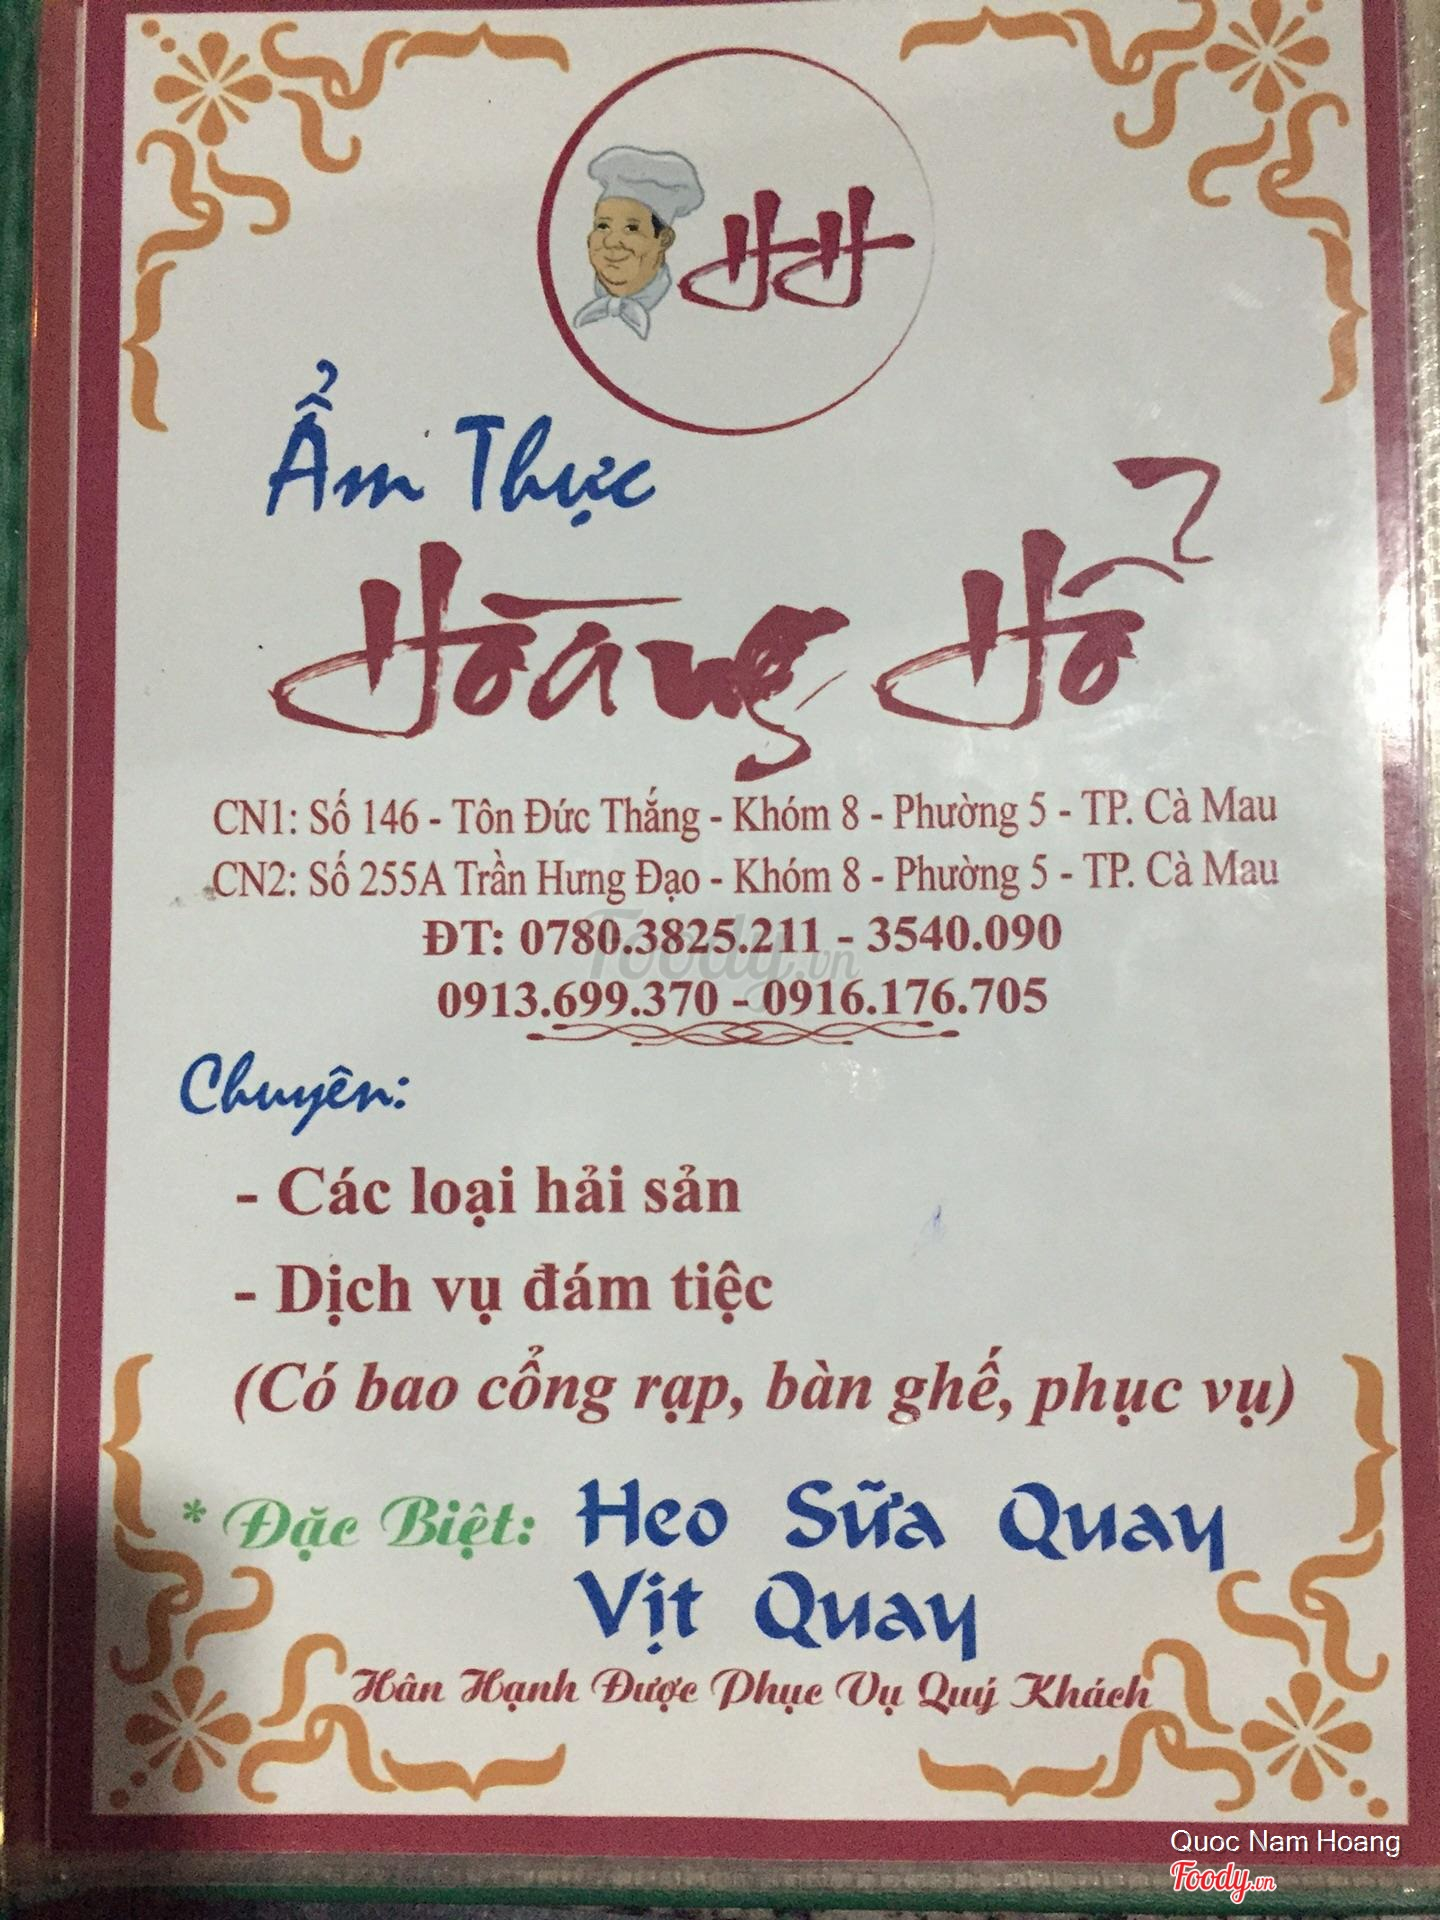 HH
Ẩm Thực
Hoàng Hổ
CN1: Số 146 - Tôn Đức Thắng - Khóm 8 - Phường 5 - TP. Cà Mau
CN2: Số 255A Trần Hưng Đạo - Khóm 8 - Phường 5 - TP. Cà Mau
ĐT: 0780.3825.211 - 3540.090
Foody.vn
0913.699.370 - 0916.176.705
Chuyên:
- Các loại hải sản
- Dịch vụ đám tiệc
(Có bao cổng rạp, bàn ghế, phục vụ)
* Đặc Biệt: Heo Sữa Quay
Vịt Quay
Hân Hạnh Được Phục Vụ Quý Khách
Quoc Nam Hoang
Foody.vn